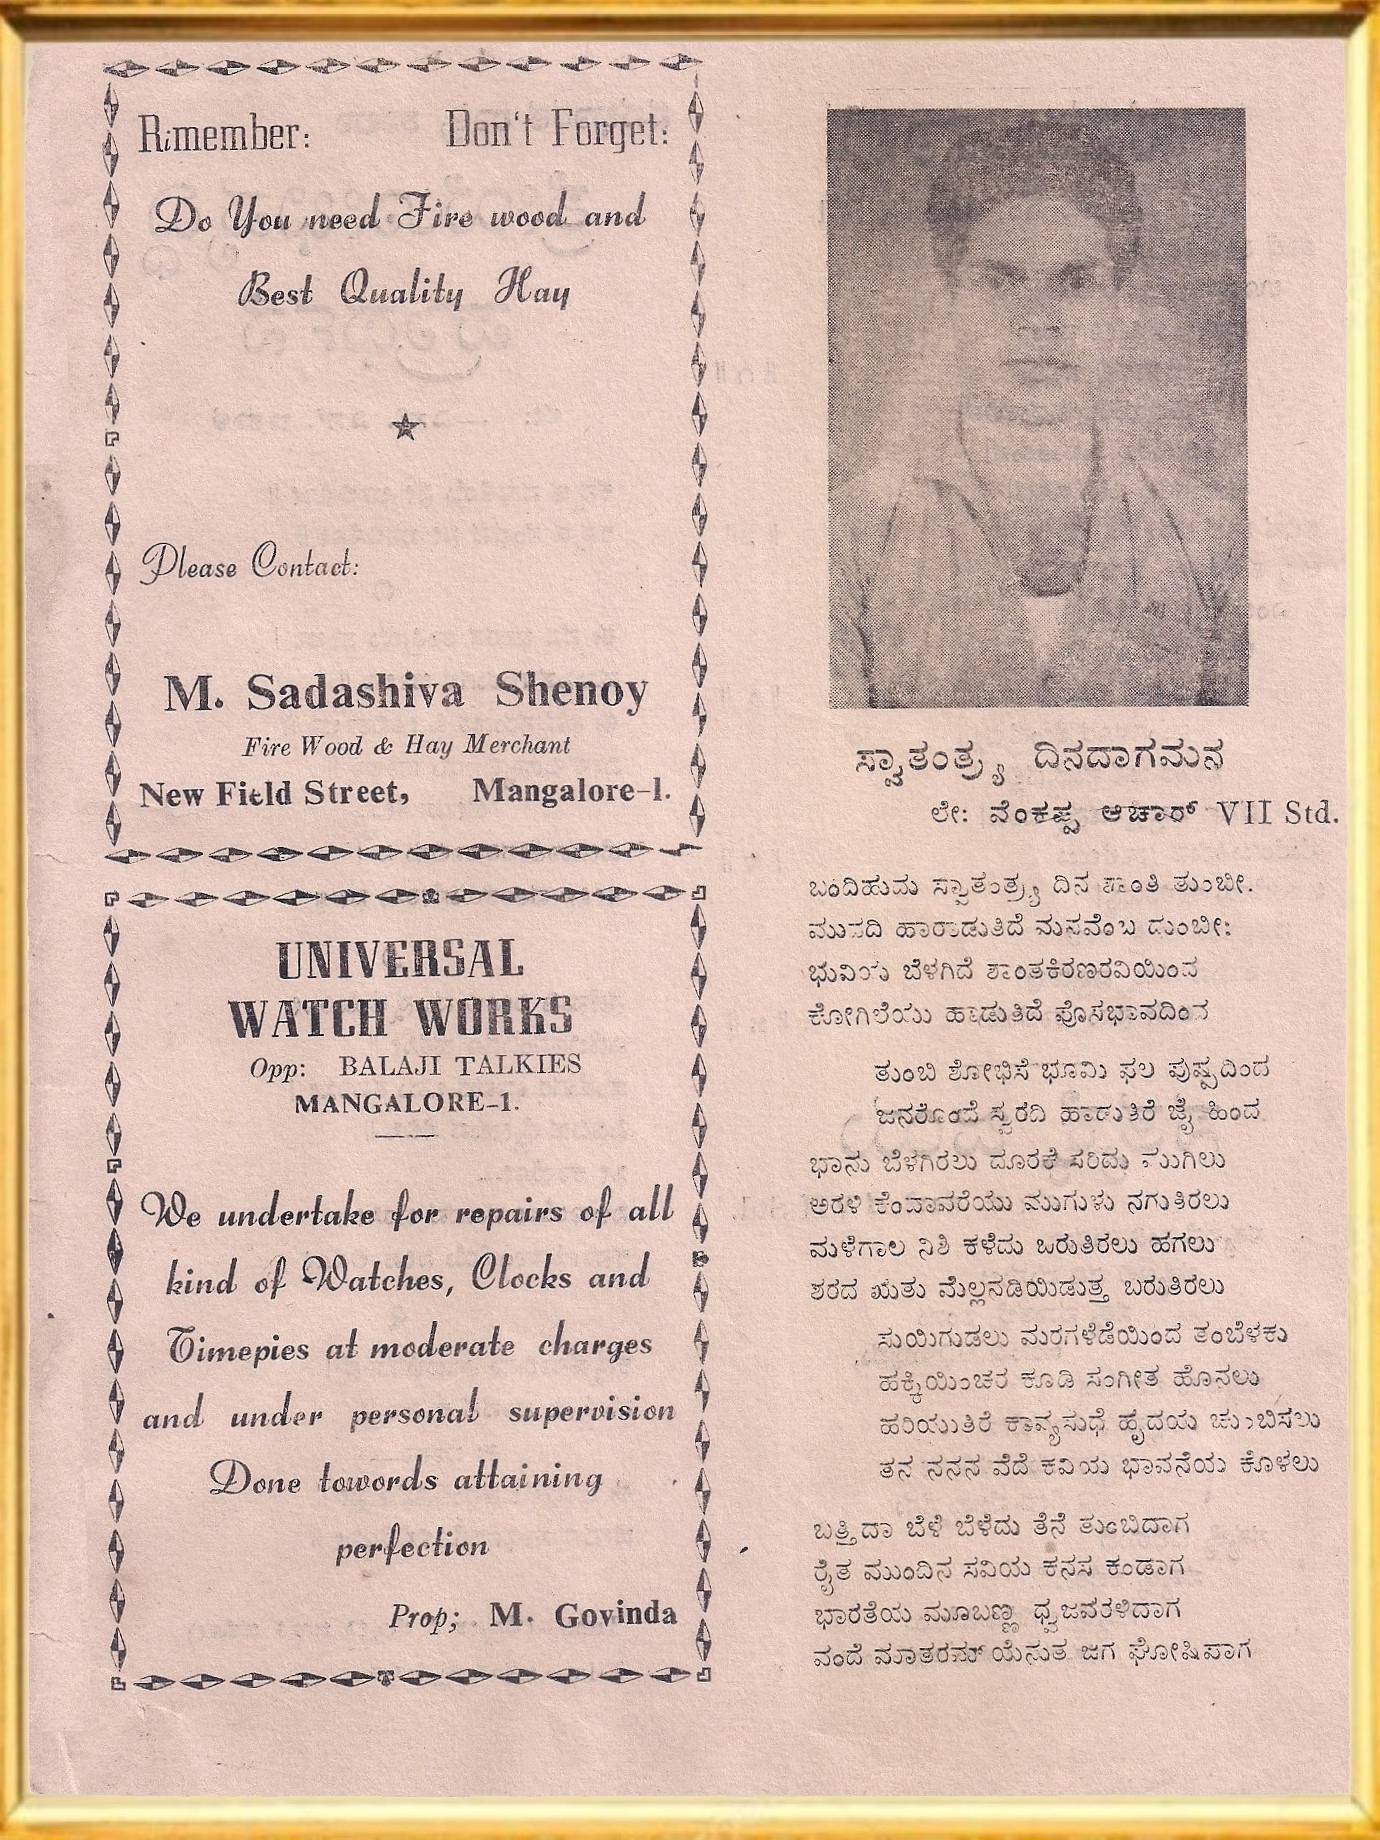 Rimember: Don't Forget:
Do You need Fire wood and
Best Quality Hay
Please Contact:
M. Sadashiva Shenoy
Fire Wood & Hay Merchant
New Field Street, Mangalore-1.
UNIVERSAL
WATCH WORKS
Opp: BALAJI TALKIES
MANGALORE-1.
We undertake for repairs of all
kind of Watches, Clocks and
Timepies at moderate charges
and under personal supervision
Done towords attaining
perfection
Prop; M. Govinda
ಸ್ವಾತಂತ್ರ್ಯ ದಿನದಾಗಮನ
ಲೇ: ವೆಂಕಪ್ಪ ಆಚಾರ್ VII Std.
ಬಂದಿಹುದು ಸ್ವಾತಂತ್ರ್ಯ ದಿನ ಶಾಂತಿ ತುಂಬೀ.
ಮುದದಿ ಹಾರಾಡುತಿದೆ ಮನವೆಂಬ ದುಂಬೀ:
ಭುವಿಯ ಬೆಳಗಿದೆ ಶಾಂತಕಿರಣರವಿಯಿಂದ
ಕೋಗಿಲೆಯು ಹಾಡುತಿದೆ ಪೊಸಭಾವದಿಂದ
ತುಂಬಿ ಶೋಭಿಸೆ ಭೂಮಿ ಫಲ ಪುಷ್ಪದಿಂದ
ಜನರೊಂದೆ ಸ್ವರದಿ ಹಾಡುತಿರೆ ಜೈ ಹಿಂದ
ಭಾನು ಬೆಳಗಿರಲು ದೂರಕೆ ಸರಿದು ಮುಗಿಲು
ಅರಳಿ ಕೆಂದಾವರೆಯು ಮುಗುಳು ನಗುತಿರಲು
ಮಳೆಗಾಲ ನಿಶಿ ಕಳೆದು ಒರುತಿರಲು ಹಗಲು
ಶರದ ಋತು ಮೆಲ್ಲನಡಿಯಿಡುತ್ತ ಬರುತಿರಲು
ಸುಯಿಗುಡಲು ಮರಗಳೆಡೆಯಿಂದ ತಂಬೆಳಕು
ಹಕ್ಕಿಯಿಂಚರ ಕೂಡಿ ಸಂಗೀತ ಹೊನಲು
ಹರಿಯುತಿರೆ ಕಾವ್ಯಸುಧೆ ಹೃದಯ ಚುಂಬಿಸಲು
ತನ ನನನ ವೆದೆ ಕವಿಯ ಭಾವನೆಯ ಕೊಳಲು
ಬತ್ತಿದಾ ಬೆಳೆ ಬೆಳೆದು ತೆನೆ ತುಂಬಿದಾಗ
ರೈತ ಮುಂದಿನ ಸವಿಯ ಕನಸ ಕಂಡಾಗ
ಭಾರತೆಯ ಮೂಬಣ್ಣ ಧ್ವಜವರಳಿದಾಗ
ವಂದೆ ಮಾತರಮ್ ಯೆನುತ ಜಗ ಘೋಷಿಪಾಗ